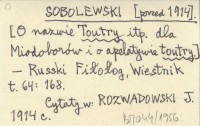 SOBOLEWSKI [przed 1914].
[O nazwie Toutry itp. dla
Miodoborów i o apelatywie toutry]
— Russki Fiłołog. Wiestnik
t. 64: 168.
Cytaty w: ROZWADOWSKI J.
1914 c.
BJ044/1956